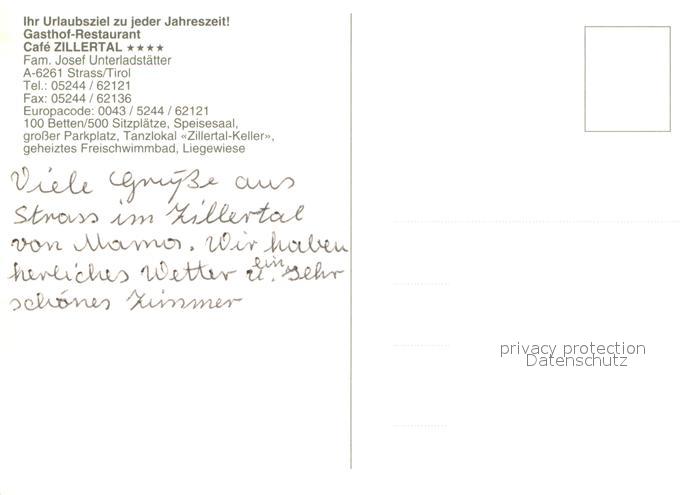 Ihr Urlaubsziel zu jeder Jahreszeit!
Gasthof-Restaurant
Café ZILLERTAL ★★★★
Fam. Josef Unterladstätter
A-6261 Strass/Tirol
Tel.: 05244 / 62121
Fax: 05244 / 62136
Europacode: 0043 / 5244 / 62121
100 Betten/500 Sitzplätze, Speisesaal,
großer Parkplatz, Tanzlokal «Zillertal-Keller»,
geheiztes Freischwimmbad, Liegewiese
Viele Grüße aus
Strass im Zillertal
von Mama. Wir haben
herliches Wetter u. ein sehr
schönes Zimmer
privacy protection
Datenschutz